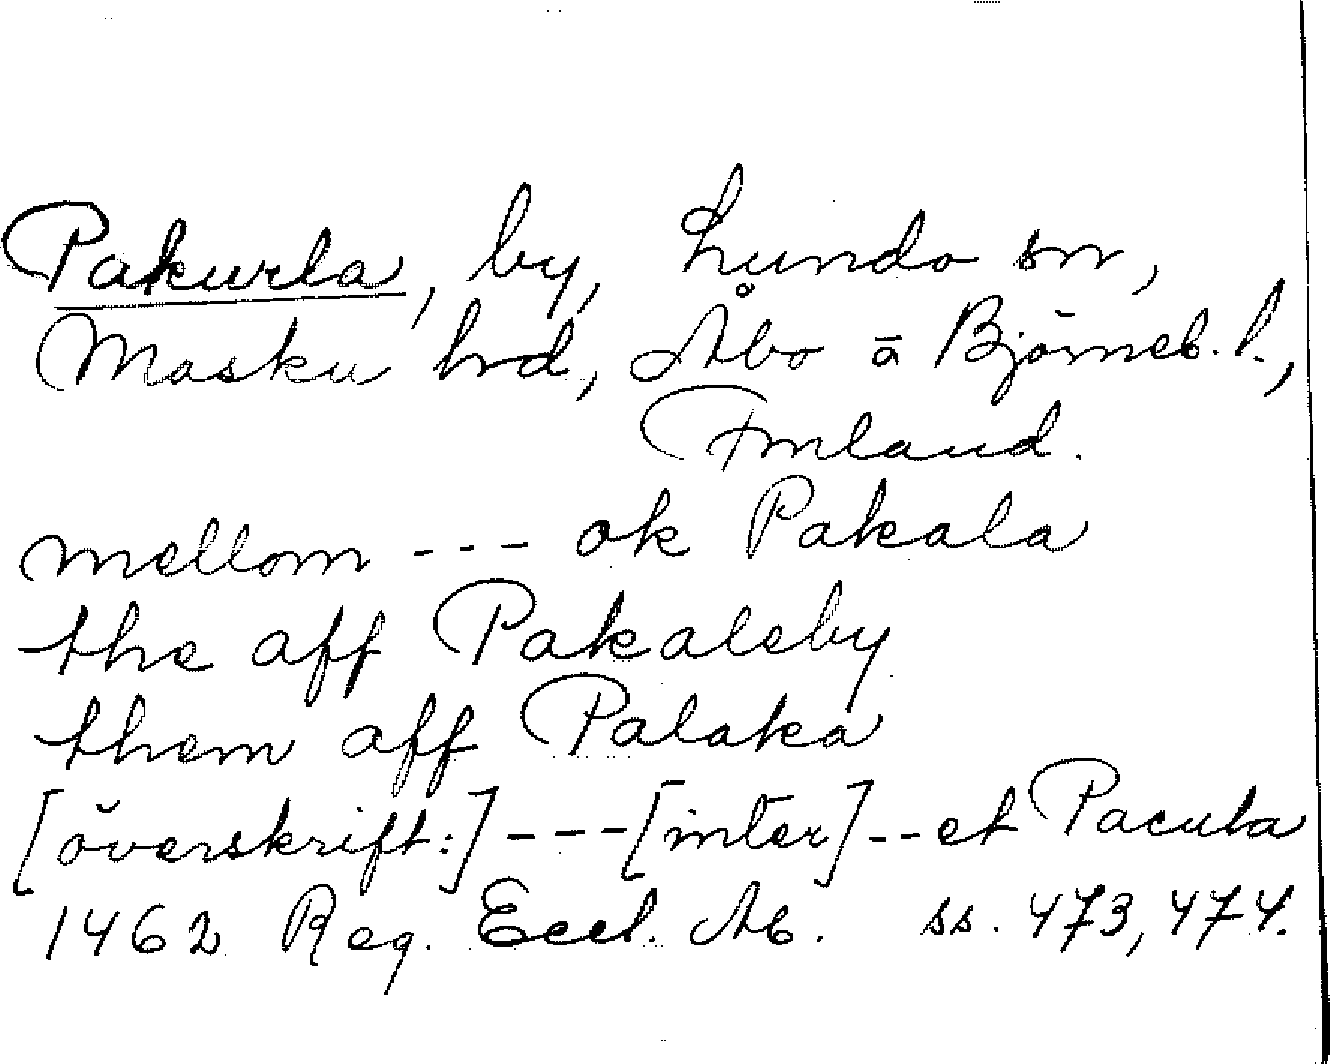 Pakurla, by, Lundo sn,
Masku hrd, Åbo o Björneb. l.,
Finland.
mellom --- ok Pakala
the aff Pakaleby
them aff Palaka
[överskrift:] --- [inter] -- et Pacula
1462 Reg. Eccl. Ab. ss. 473, 474.